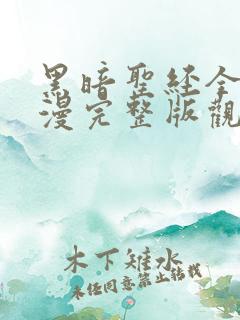 黑暗聖經全
漫完整版觀
木下雉水
未任同意禁止結戟